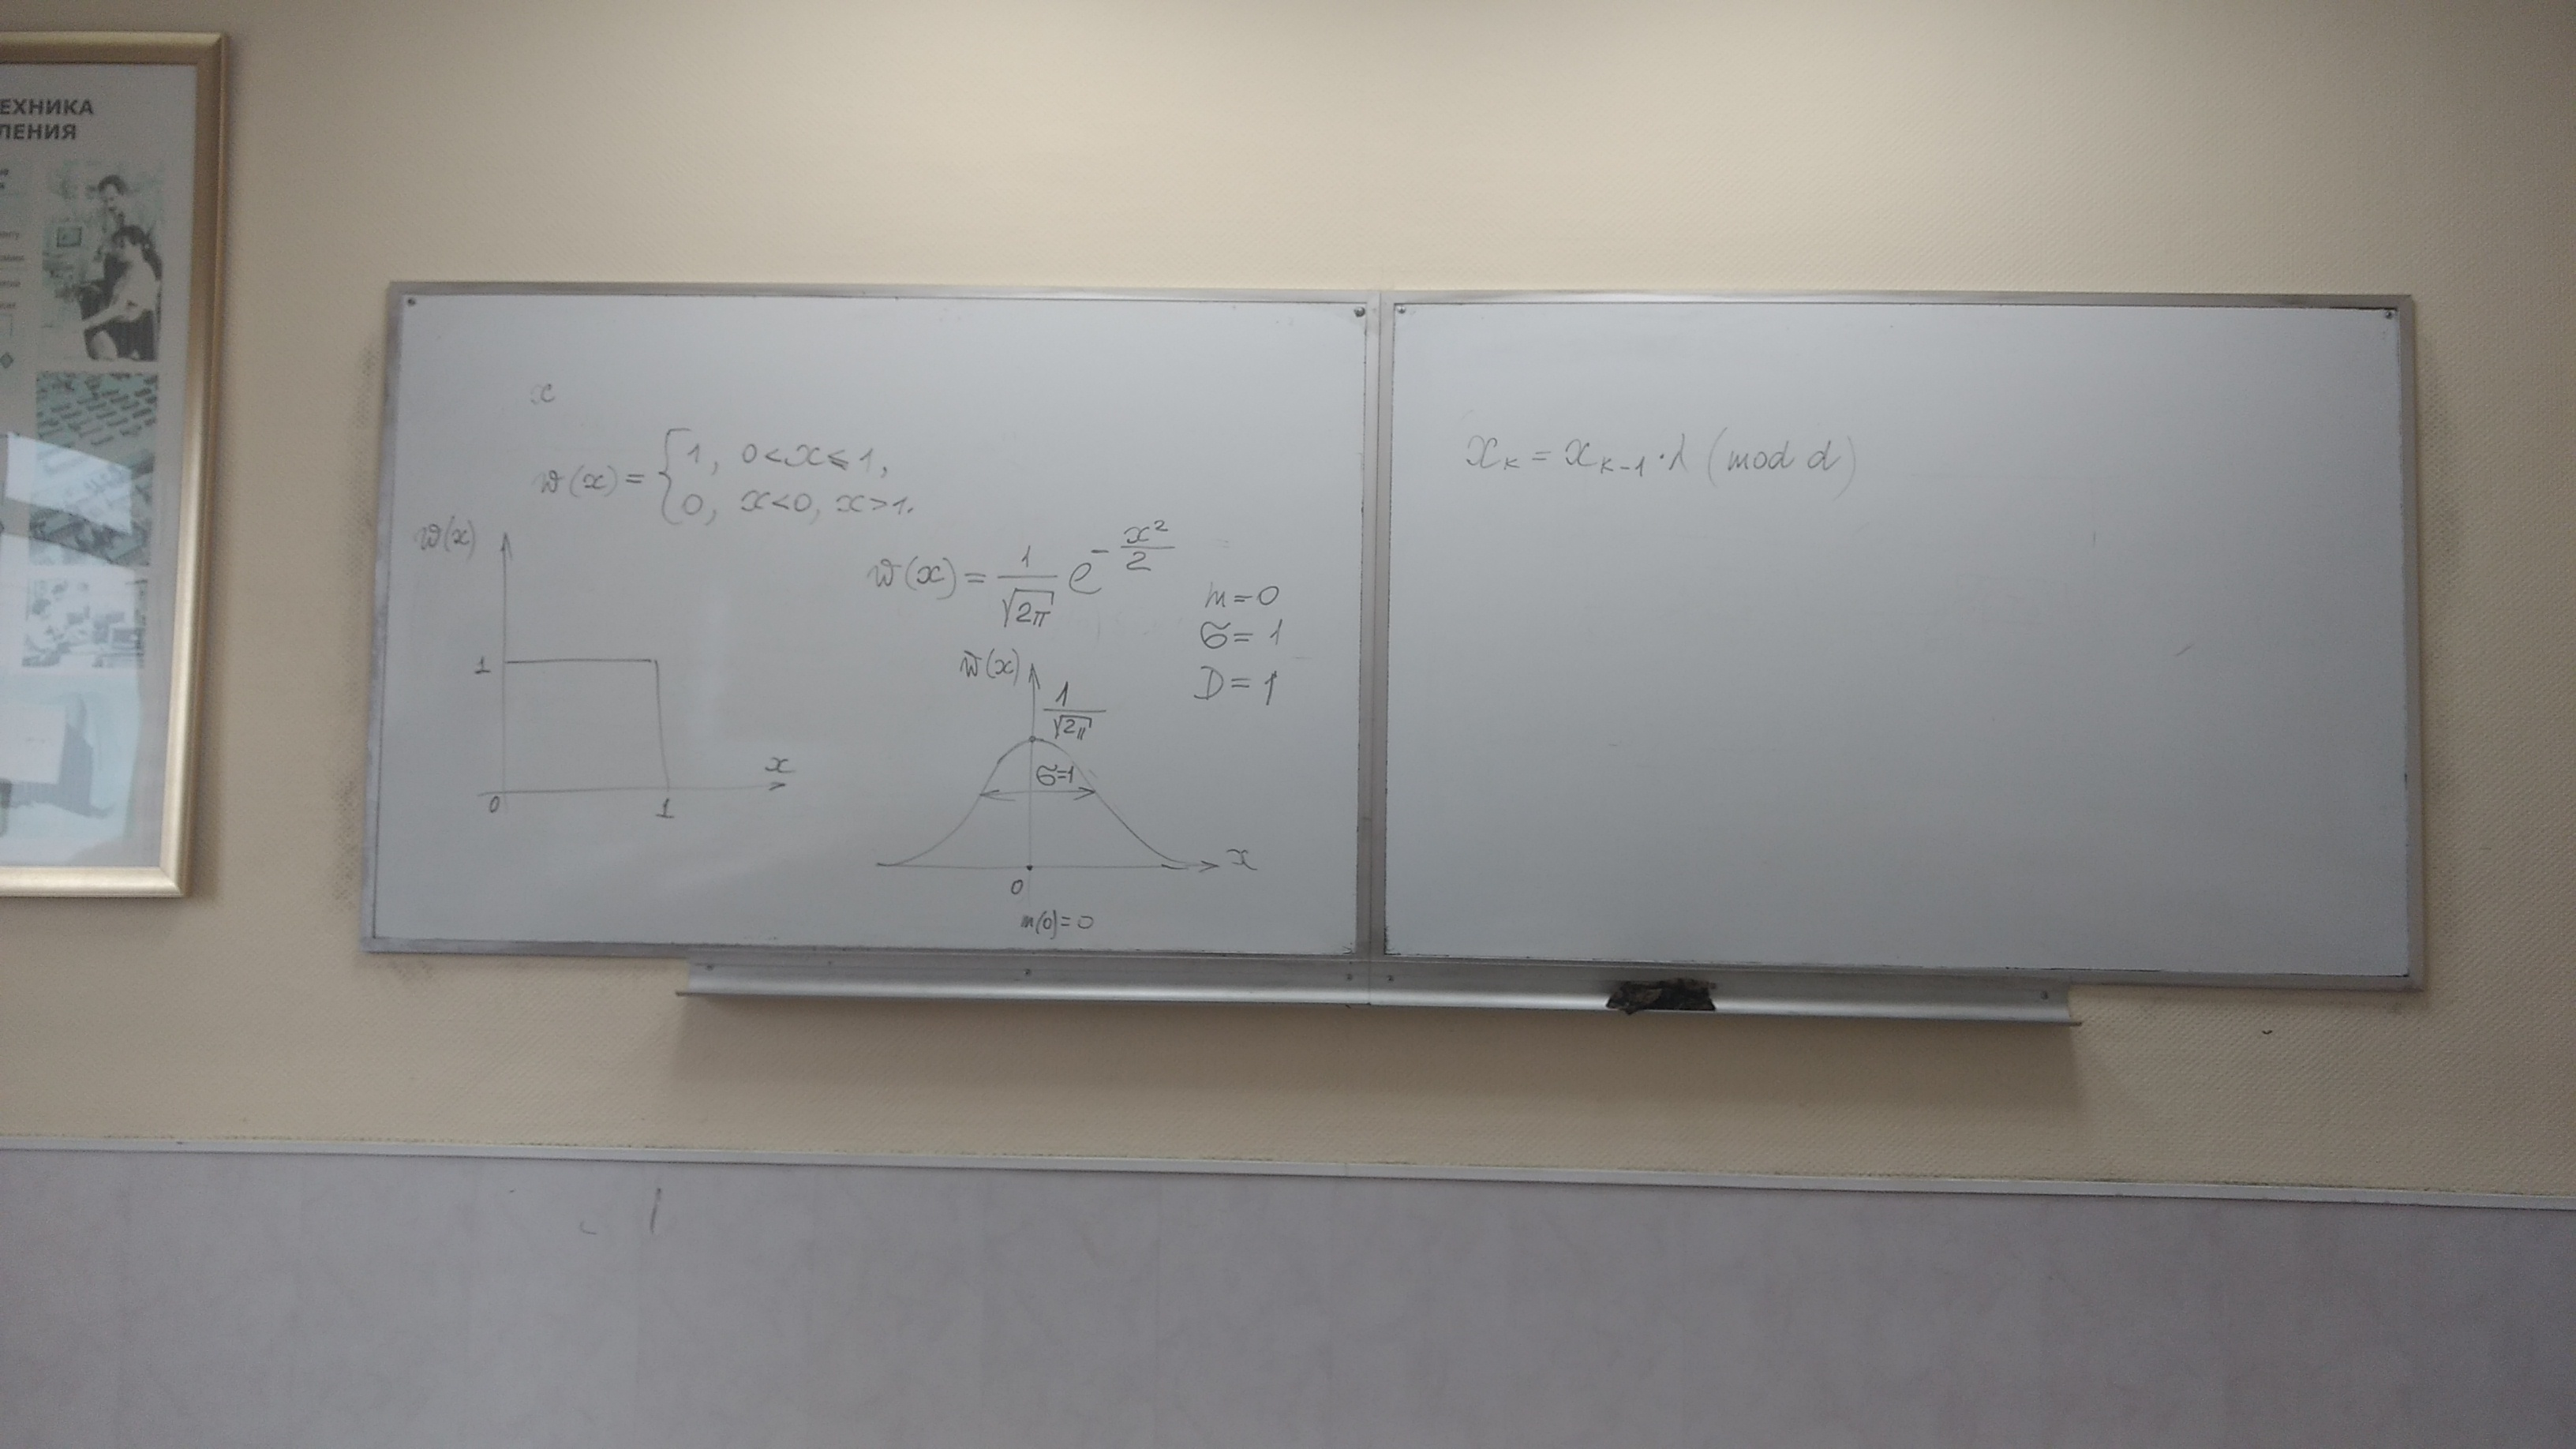 ЕХНИКА
ЛЕНИЯ
x
w(x) = { 1, 0<x⩽1,
0, x<0, x>1.
w(x)
1
0
1
x
w(x) = 1/√2π e^(-x²/2)
m=0
σ=1
D=1
w(x)
1/√2π
σ=1
x
0
m(0)=0
xₖ = xₖ₋₁·λ (mod d)